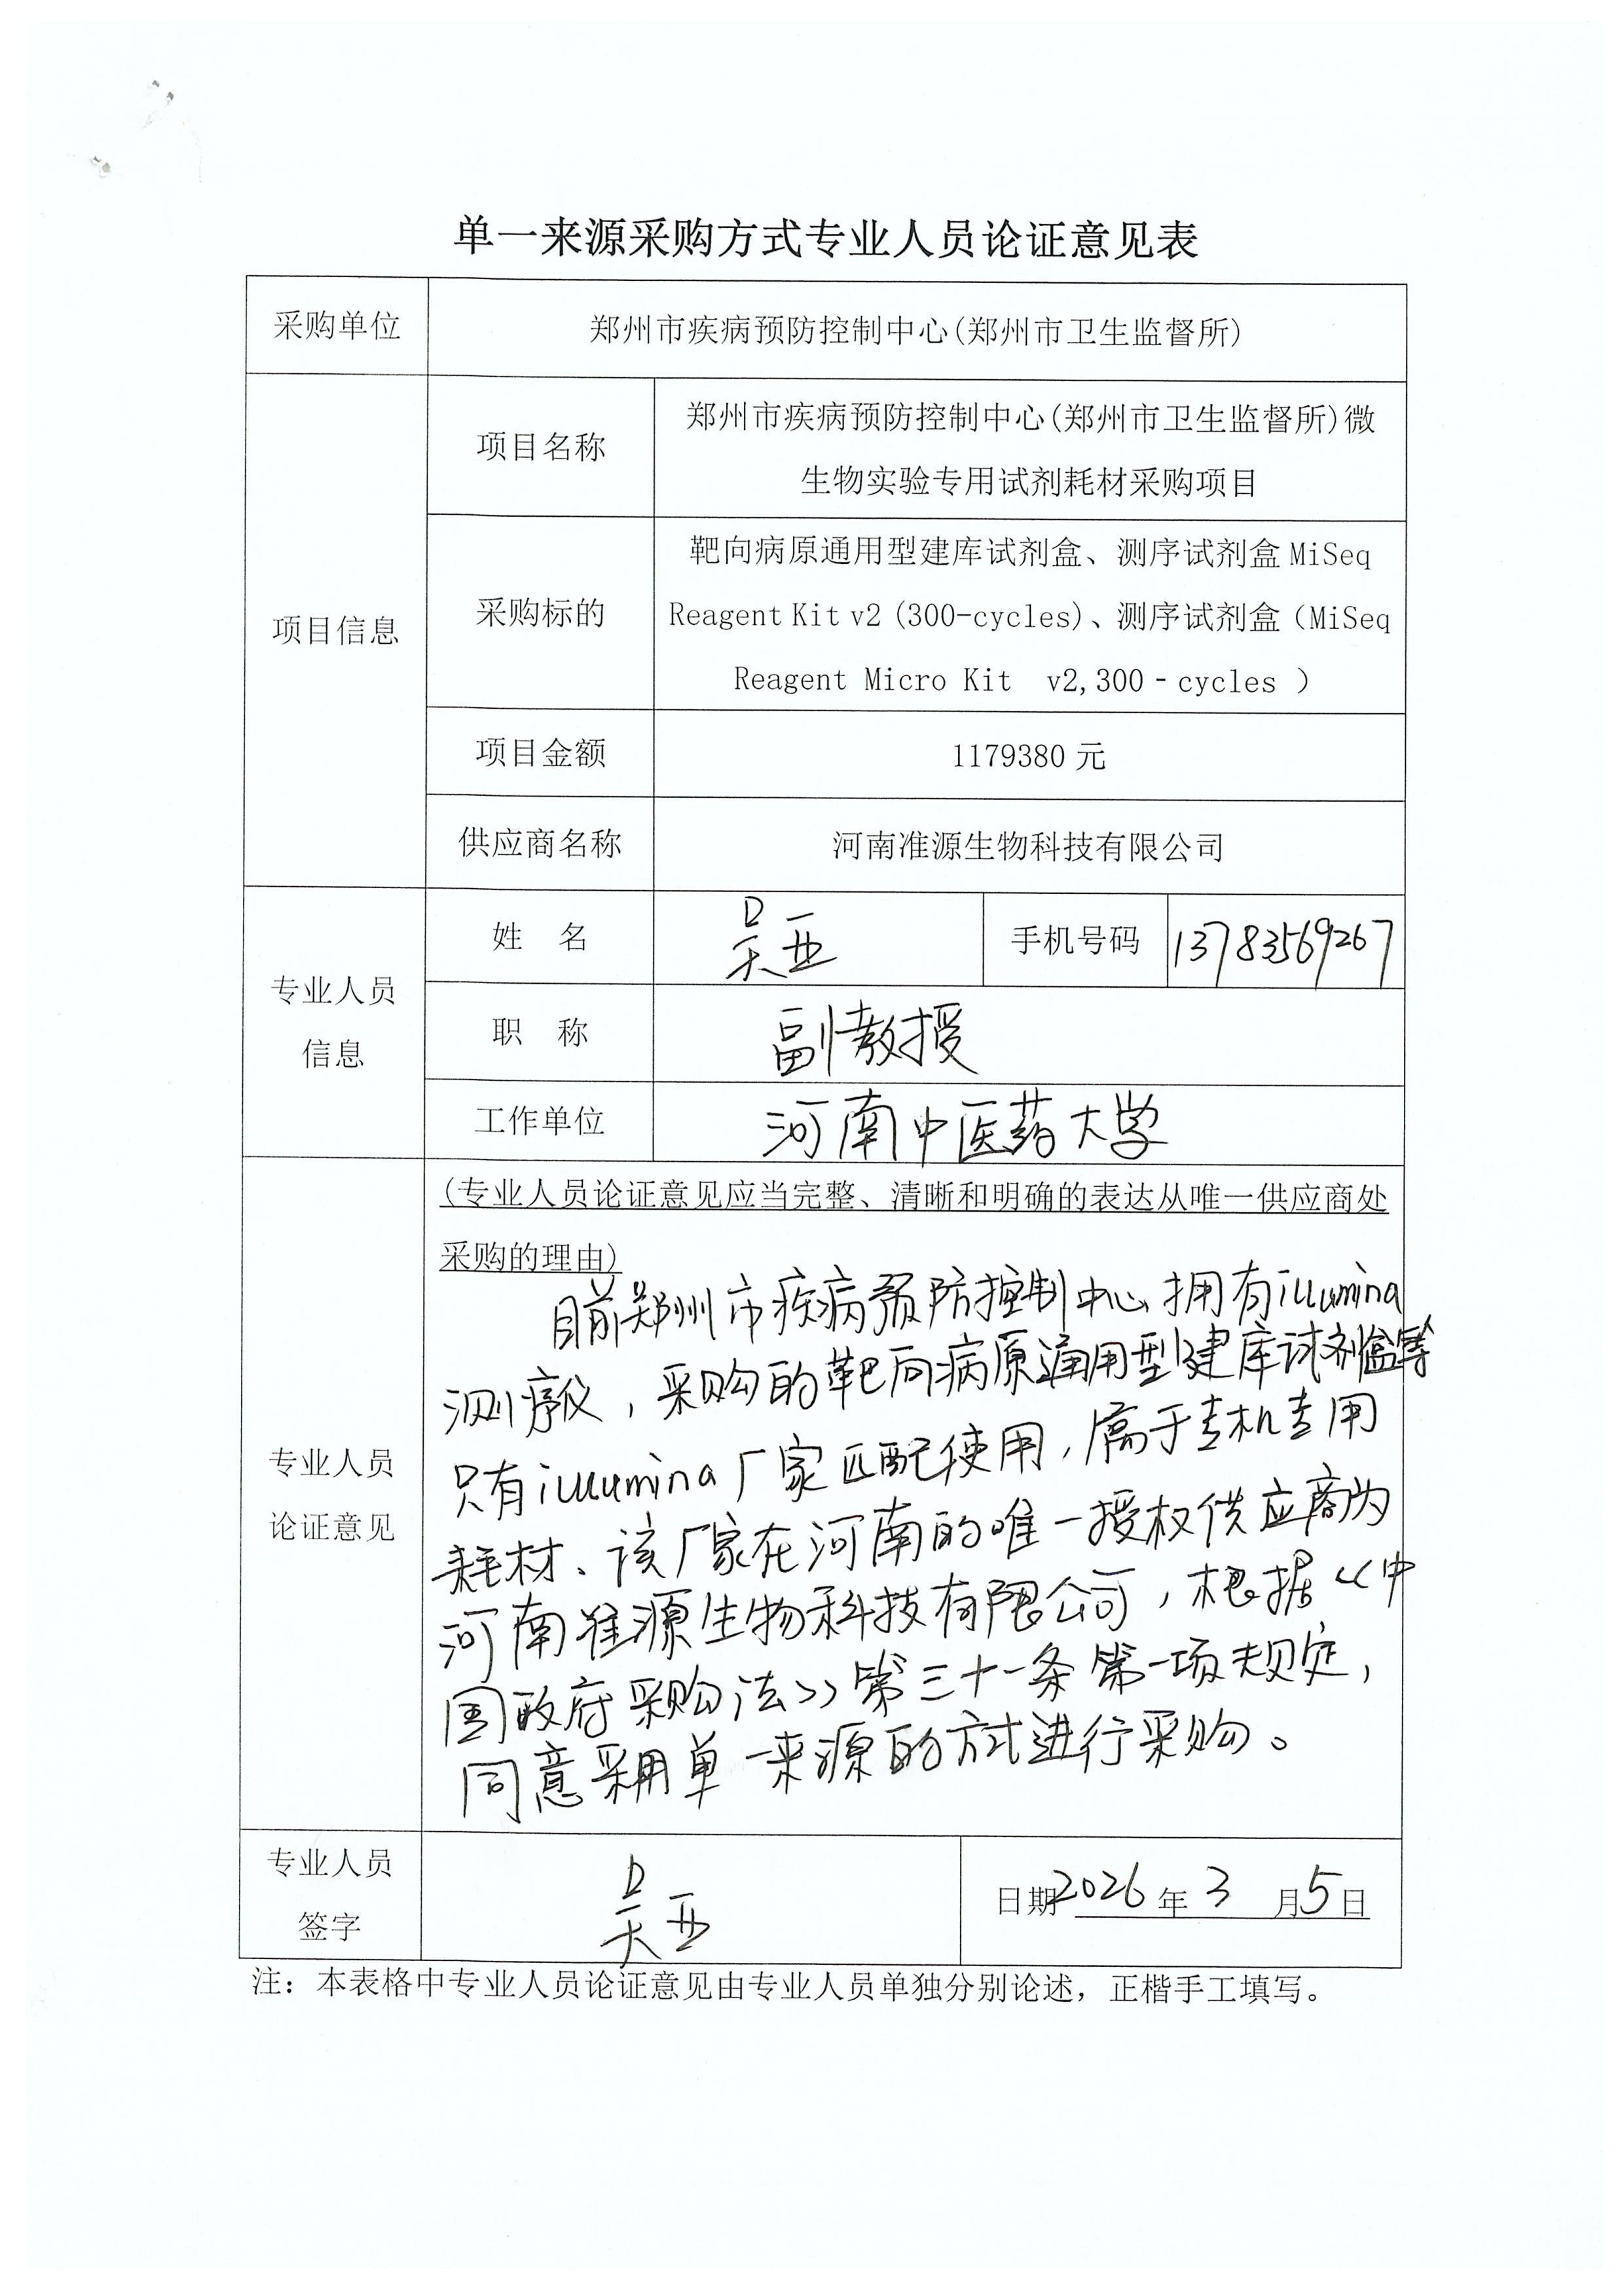 单一来源采购方式专业人员论证意见表
采购单位
郑州市疾病预防控制中心(郑州市卫生监督所)
项目信息
项目名称
郑州市疾病预防控制中心(郑州市卫生监督所)微
生物实验专用试剂耗材采购项目
采购标的
靶向病原通用型建库试剂盒、测序试剂盒 MiSeq
Reagent Kit v2 (300-cycles)、测序试剂盒（MiSeq
Reagent Micro Kit v2,300‐cycles ）
项目金额
1179380 元
供应商名称
河南准源生物科技有限公司
专业人员
信息
姓 名
吴亚
手机号码
13783569267
职 称
副教授
工作单位
河南中医药大学
专业人员
论证意见
(专业人员论证意见应当完整、清晰和明确的表达从唯一供应商处
采购的理由)
目前郑州市疾病预防控制中心拥有illumina
测序仪，采购的靶向病原通用型建库试剂盒等
只有illumina厂家匹配使用，属于专机专用
耗材、该厂家在河南的唯一授权供应商为
河南准源生物科技有限公司，根据《中
国政府采购法》第三十一条第一项规定，
同意采用单一来源的方式进行采购。
专业人员
签字
吴亚
日期2026年3月5日
注：本表格中专业人员论证意见由专业人员单独分别论述，正楷手工填写。